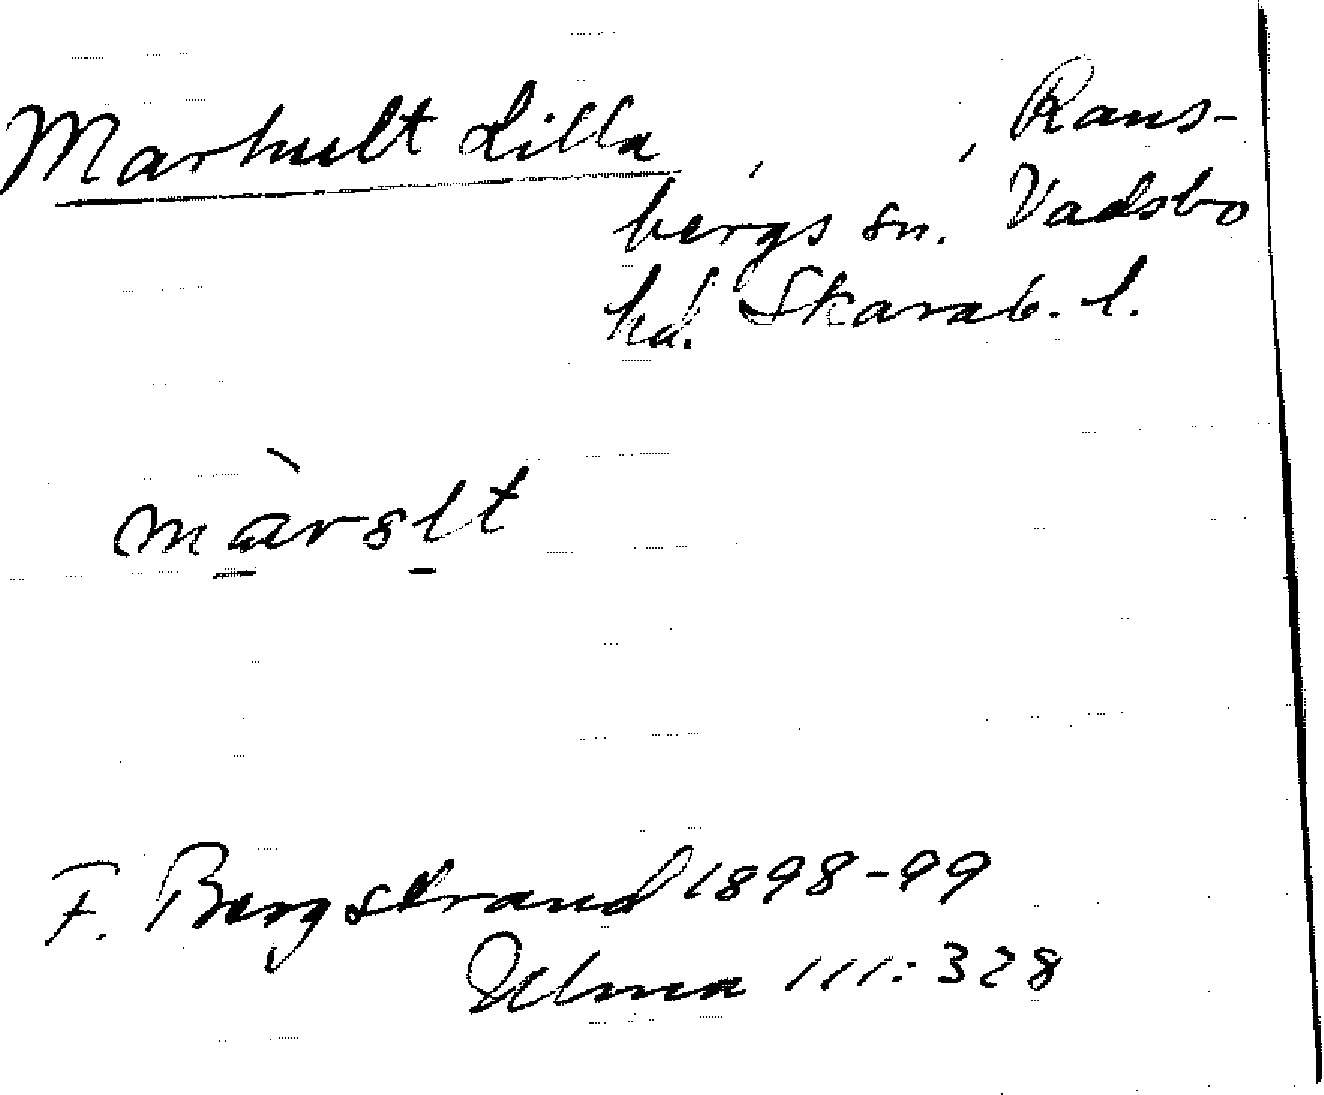 Marhult Lilla , , Rans-
bergs sn. Vadsbo
hd. Skarab. l.
màrslt
F. Bergstrand 1898-99
Ulma 111:328